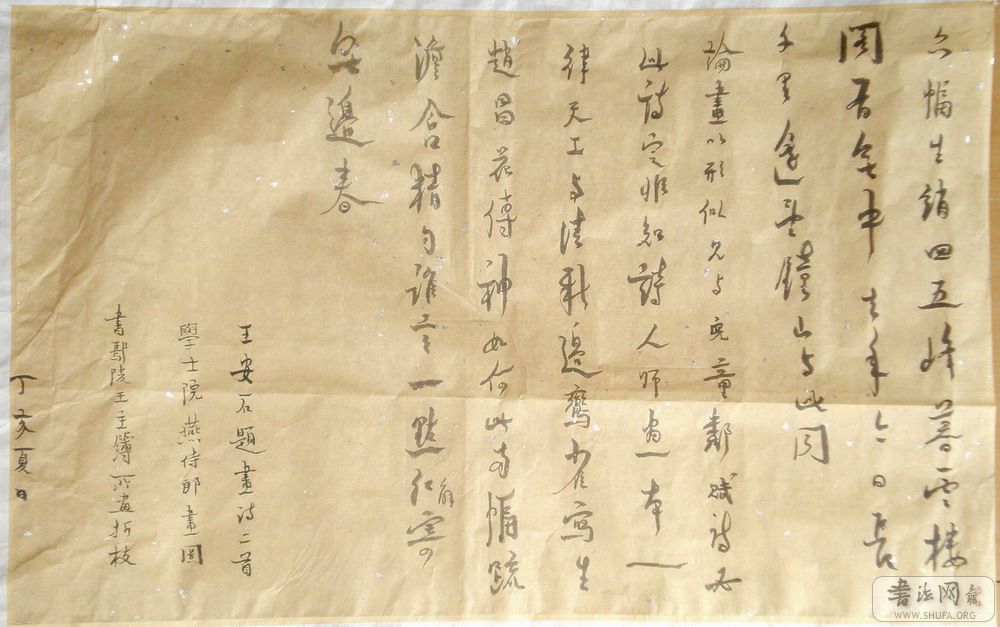 六幅生綃四五峰暮雲樓
閣有無中去年今日長
千里遙望鐘山与此同
論畫以形似見与兒童鄰賦詩必
此詩定非知詩人詩画本一
律天工与清新邊鸞雀寫生
趙昌花傳神如何此兩幅疏
澹含精勻誰言一點紅解寄
無邊春
王安石題畫詩二首
學士院燕侍郎畫圖
書鄢陵王主簿所畫折枝
丁亥夏日
书法网
WWW.SHUFA.ORG